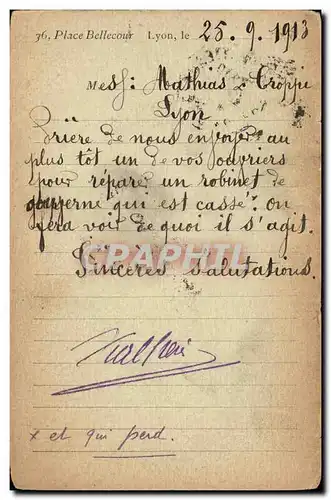 36, Place Bellecour Lyon, le 25.9.1913
Mess: Mathias & Croppi
Lyon
Prière de nous envoyer au
plus tôt un de vos ouvriers
pour réparer un robinet de
qui est cassé × on
fera voir de quoi il s'agit.
Sincères Salutations.
CPAPHIL
x et qui perd.